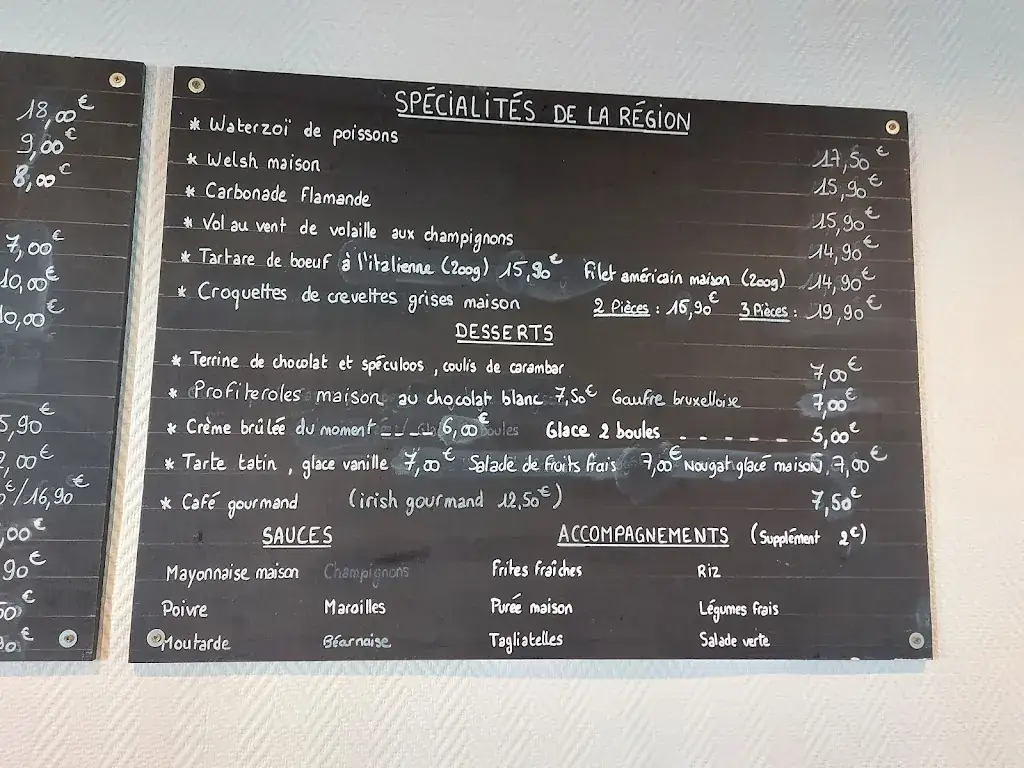 18,00€
9,00€
8,00€
7,00€
10,00€
10,00€
5,90€
,00€
€/16,90€
,00€
90€
€
€
SPÉCIALITÉS DE LA RÉGION
* Waterzoï de poissons 17,50€
* Welsh maison 15,90€
* Carbonade Flamande 15,90€
* Vol au vent de volaille aux champignons 14,90€
* Tartare de boeuf à l'italienne (200g) 15,90€ Filet américain maison (200g) 14,90€
* Croquettes de crevettes grises maison 2 Pièces : 16,90€ 3 Pièces : 19,90€
DESSERTS
* Terrine de chocolat et spéculoos, coulis de carambar 7,00€
* Profiteroles maison au chocolat blanc 7,50€ Gaufre bruxelloise 7,00€
* Crème brûlée du moment ---- 6,00€ boules Glace 2 boules ------ 5,00€
* Tarte tatin, glace vanille 7,00€ Salade de fruits frais 7,00€ Nougat glacé maison, 7,00€
* Café gourmand (irish gourmand 12,50€) 7,50€
SAUCES ACCOMPAGNEMENTS (Supplément 2€)
Mayonnaise maison Champignons Frites fraîches Riz
Poivre Maroilles Purée maison Légumes frais
Moutarde Béarnaise Tagliatelles Salade verte